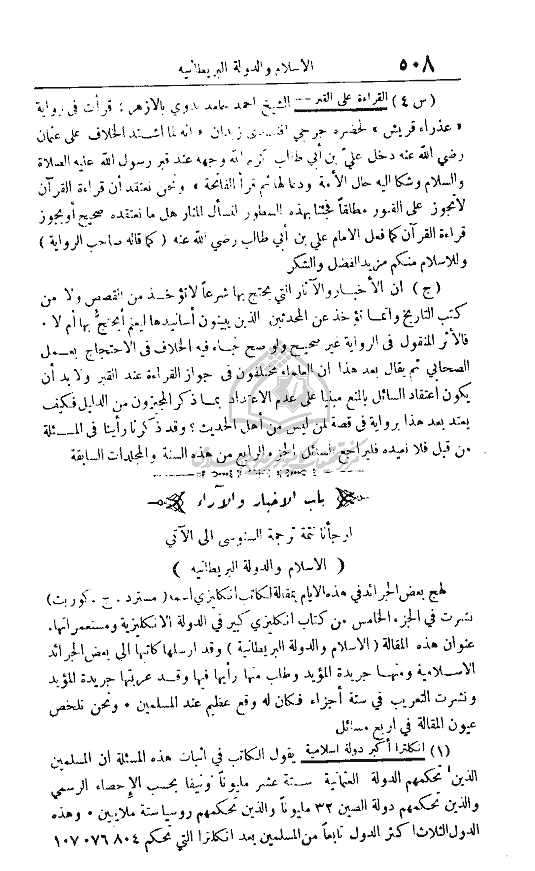 ٥٠٨ الاسلام والدولة البريطانيه
(س ٤) القراءة على القبر -- الشيخ احمد حامد بدوي بالازهر : قرأت فى رواية
« عذراء قريش » لحضره جرجي افندى زيدان « انه لما اشتد الخلاف على عثمان
رضي الله عنه دخل علي بن أبي طالب كرم الله وجهه عند قبر رسول الله عليه الصلاة
والسلام وشكا اليه حال الأمة ودعا لها ثم قرأ الفاتحة » ونحن نعتقد أن قراءة القرآن
لا تجوز على القبور مطلقاً فجئنا بهذه السطور لنسأل المنار هل ما نعتقده صحيح أو يجوز
قراءة القرآن كما فعل الامام علي بن أبي طالب رضي الله عنه ( كما قاله صاحب الرواية )
وللاسلام منكم مزيد الفضل والشكر
(ج) ان الأخبار والآثار التي يحتج بها شرعاً لا تؤخذ من القصص ولا من
كتب التاريخ وانما تؤخذ عن المحدثين الذين يبينون أسانيدها ليعلم أيحتج بها أم لا ٠
فالأثر المنقول فى الرواية غير صحيح ولو صح لجاء فيه الخلاف فى الاحتجاج بعمل
الصحابي ثم يقال بعد هذا ان العلماء مختلفون فى جواز القراءة عند القبر ولا بد أن
يكون اعتقاد السائل بالمنع مبنيا على عدم الاعتداد بما ذكر المجيزون من الدليل فكيف
يعتد بعد هذا برواية فى قصة لمن ليس من أهل الحديث ؟ وقد ذكرنا رأينا فى المسئلة
من قبل فلا نعيده فليراجع السائل الجزء الرابع من هذه السنة والمجلدات السابقة
باب الاخبار والآراء
ارجأنا تتمة ترجمة السنوسى الى الآتي
( الاسلام والدولة البريطانيه )
لهج بعض الجرائد في هذه الايام بمقالة لكاتب انكليزي اسمه ( مستر د . ج . كوربت )
نشرت في الجزء الخامس من كتاب انكليزي كبير فى الدولة الانكليزية ومستعمراتها.
عنوان هذه المقالة ( الاسلام والدولة البريطانية ) وقد ارسلها كاتبها الى بعض الجرائد
الاسلامية ومنها جريدة المؤيد وطلب منها رأيها فيها وقد عربتها جريدة المؤيد
ونشرت التعريب في ستة أجزاء فكان له وقع عظيم عند المسلمين ٠ ونحن نلخص
عيون المقالة في اربع مسائل
(١) انكلترا أكبر دولة اسلامية يقول الكاتب في اثبات هذه المسئلة ان المسلمين
الذين تحكمهم الدولة العثمانية ستة عشر مليوناً ونيفا بحسب الإحصاء الرسمي
والذين تحكمهم دولة الصين ٣٢ مليوناً والذين تحكمهم روسيا ستة ملايين ٠ وهذه
الدول الثلاث اكثر الدول تابعاً من المسلمين بعد انكلترا التي تحكم ٨٠٤ ٠٧٦ ١٠٧